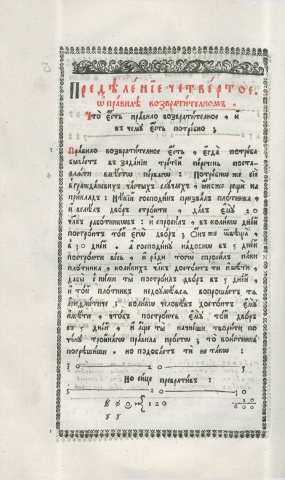 Предѣленїе четвертое.
Ѡ правилѣ возвратителномъ.
Что̀ есть правило возвратителное, и
въ чемꙋ есть потребно;
Правило возвратителное есть, егда потреба
бываетъ въ заданїи третїй перечень постав
ляти вмѣсто перваго: Потребно же сїе
въ гражданскихъ частыхъ случаяхъ, ꙗкоже рещи на
прикладъ: Нѣкїй господинъ призвалъ плотника,
и велѣлъ дворъ строити, давъ емꙋ 20
члкъ работниковъ: и спросилъ, въ колико дней
построитъ той его дворъ; Онъ же ѿвѣща,
въ 30 дней. а господинꙋ надобно въ 5 дней
построити весь, и ради того спросилъ паки
плотника, коликихъ члкъ достоитъ ти имѣти,
дабы с ними ты построилъ дворъ въ 5 дней,
и той плотникъ недоꙋмѣваѧ вопрошаетъ тѧ
ариѳметїче; колико человѣкъ достоитъ емꙋ
имѣти, чтобъ построить емꙋ той дворъ
въ 5 дней, и аще ты начнеши творити по
чинꙋ тройнагѡ правила простѡ; то воистиннꙋ
погрѣшиши. но подобаетъ ти не такѡ:
30 20 5
Но сице превративъ:
5 20 30
120
600